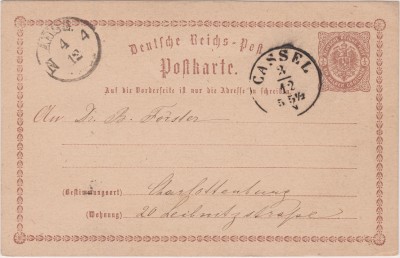 Deutsche Reichs-Post
Postkarte.
Auf die Vorderseite ist nur die Adresse zu schreiben
CASSEL
12
5 5½
V
4
12
An Dr. B. Förster
(Bestimmungsort) Charlottenburg
(Wohnung) 20 Leibnitzstraße